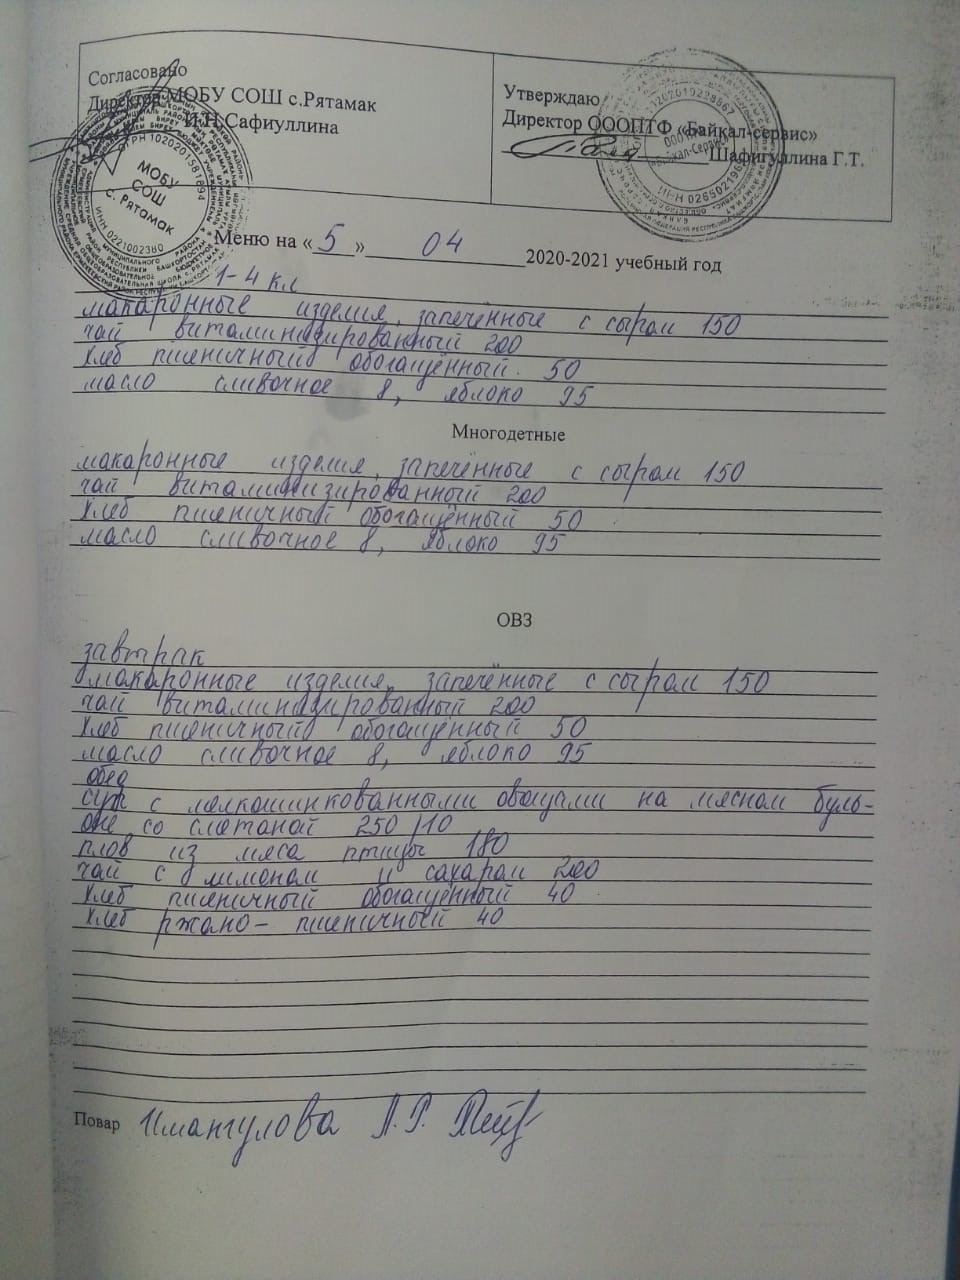 Согласовано
Директор МОБУ СОШ с.Рятамак
И.Н.Сафиуллина
Утверждаю
Директор ОООПТФ «Байкал-сервис»
Шафигуллина Г.Т.
ОГРН 1020201581894
МОБУ
СОШ
с. Рятамак
ИНН 0221002380
«Байкал-Сервис»
Меню на «5» 04 2020-2021 учебный год
1-4 кл
макаронные изделия, запечённые с сыром 150
чай витаминизированный 200
хлеб пшеничный обогащённый. 50
масло сливочное 8, яблоко 95
Многодетные
макаронные изделия, запечённые с сыром 150
чай витаминизированный 200
хлеб пшеничный обогащённый 50
масло сливочное 8, яблоко 95
ОВЗ
завтрак
макаронные изделия, запечённые с сыром 150
чай витаминизированный 200
хлеб пшеничный обогащённый 50
масло сливочное 8, яблоко 95
обед
суп с мелкошинкованными овощами на мясном буль-
оне со сметаной 250/10
плов из мяса птицы 180
чай с лимоном и сахаром 200
хлеб пшеничный обогащённый 40
хлеб ржано-пшеничный 40
Повар Имангулова Л.Р.